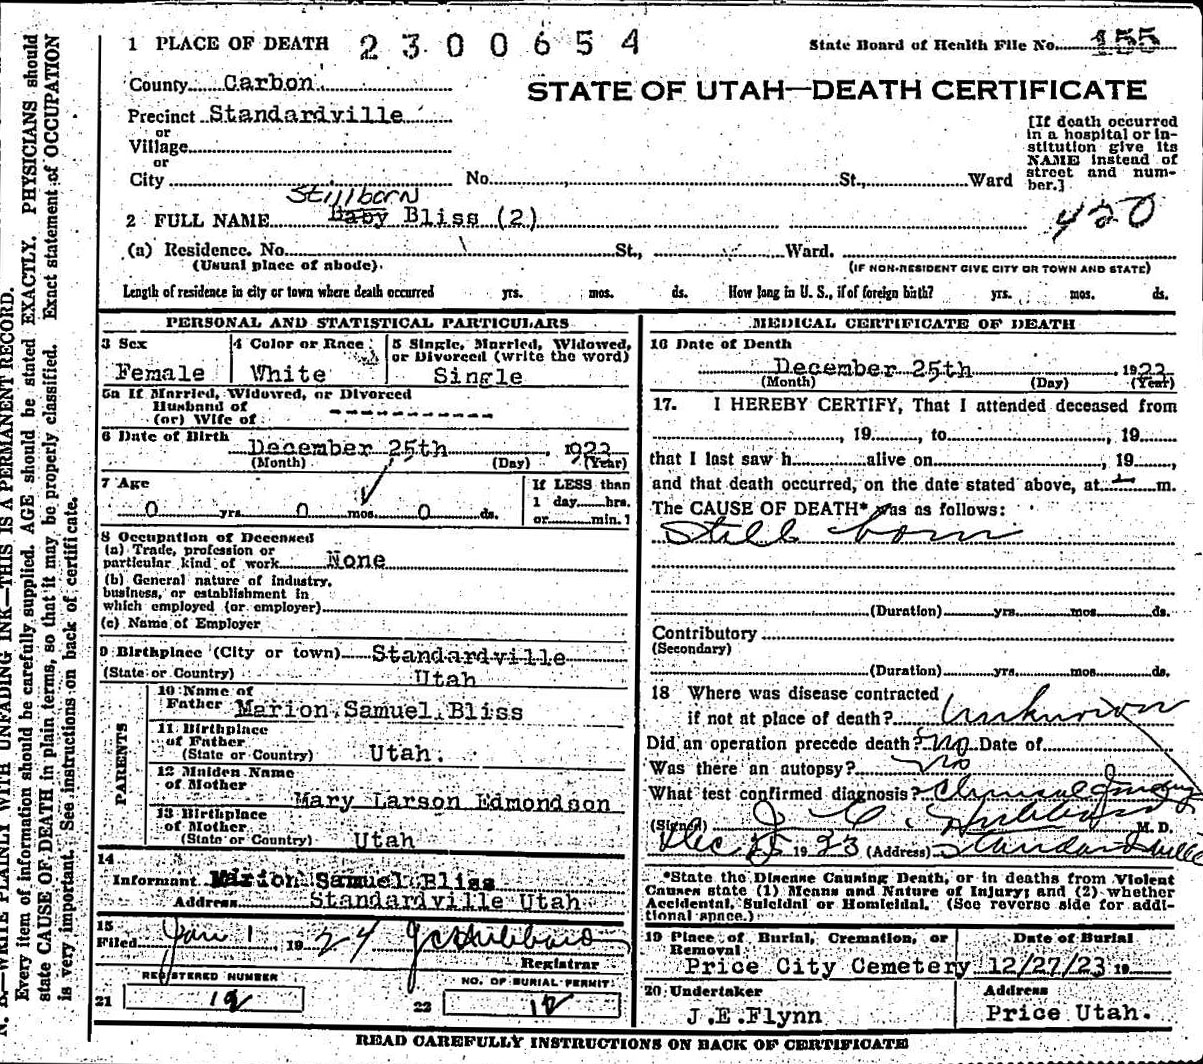 1 PLACE OF DEATH 2300654 State Board of Health File No. 155
County Carbon
STATE OF UTAH—DEATH CERTIFICATE
Precinct Standardville
or
Village
or
City No. St., Ward
[If death occurred
in a hospital or in-
stitution give its
NAME instead of
street and num-
ber.]
Stillborn
2 FULL NAME Baby Bliss (2)
420
(a) Residence. No. St., Ward.
(Usual place of abode). (IF NON-RESIDENT GIVE CITY OR TOWN AND STATE)
Length of residence in city or town where death occurred yrs. mos. ds. How long in U. S., if of foreign birth? yrs. mos. ds.
PERSONAL AND STATISTICAL PARTICULARS
3 Sex 4 Color or Race 5 Single, Married, Widowed,
or Divorced (write the word)
Female White Single
5a If Married, Widowed, or Divorced
Husband of
(or) Wife of
6 Date of Birth
December 25th, 1923
(Month) (Day) (Year)
7 Age If LESS than
1 day hrs.
0 yrs. 0 mos. 0 ds. or min. ?
8 Occupation of Deceased
(a) Trade, profession or
particular kind of work None
(b) General nature of industry,
business, or establishment in
which employed (or employer)
(c) Name of Employer
9 Birthplace (City or town) Standardville
(State or Country) Utah
PARENTS
10 Name of
Father Marion Samuel Bliss
11 Birthplace
of Father
(State or Country) Utah.
12 Maiden Name
of Mother
Mary Larson Edmondson
13 Birthplace
of Mother
(State or Country) Utah
14
Informant Marion Samuel Bliss
Address Standardville Utah
15
Filed Jan 1 1924 J C Hubbard
Registrar
REGISTERED NUMBER NO. OF BURIAL PERMIT
21 12 22 12
MEDICAL CERTIFICATE OF DEATH
16 Date of Death
December 25th, 1923
(Month) (Day) (Year)
17. I HEREBY CERTIFY, That I attended deceased from
, 19 , to , 19
that I last saw h alive on , 19 ,
and that death occurred, on the date stated above, at m.
The CAUSE OF DEATH* was as follows:
Still born
(Duration) yrs. mos. ds.
Contributory
(Secondary)
(Duration) yrs. mos. ds.
18 Where was disease contracted
if not at place of death? Unknown
Did an operation precede death? No Date of
Was there an autopsy? No
What test confirmed diagnosis? Clinical
(Signed) J. C. Hubbard M. D.
Dec 25 1923 (Address) Standardville
*State the Disease Causing Death, or in deaths from Violent
Causes state (1) Means and Nature of Injury; and (2) whether
Accidental, Suicidal or Homicidal. (See reverse side for addi-
tional space.)
19 Place of Burial, Cremation, or Date of Burial
Removal
Price City Cemetery 12/27/23 19
20 Undertaker Address
J.E.Flynn Price Utah.
READ CAREFULLY INSTRUCTIONS ON BACK OF CERTIFICATE
N. B.—WRITE PLAINLY WITH UNFADING INK—THIS IS A PERMANENT RECORD.
Every item of information should be carefully supplied. AGE should be stated EXACTLY. PHYSICIANS should
state CAUSE OF DEATH in plain terms, so that it may be properly classified. Exact statement of OCCUPATION
is very important. See instructions on back of certificate.